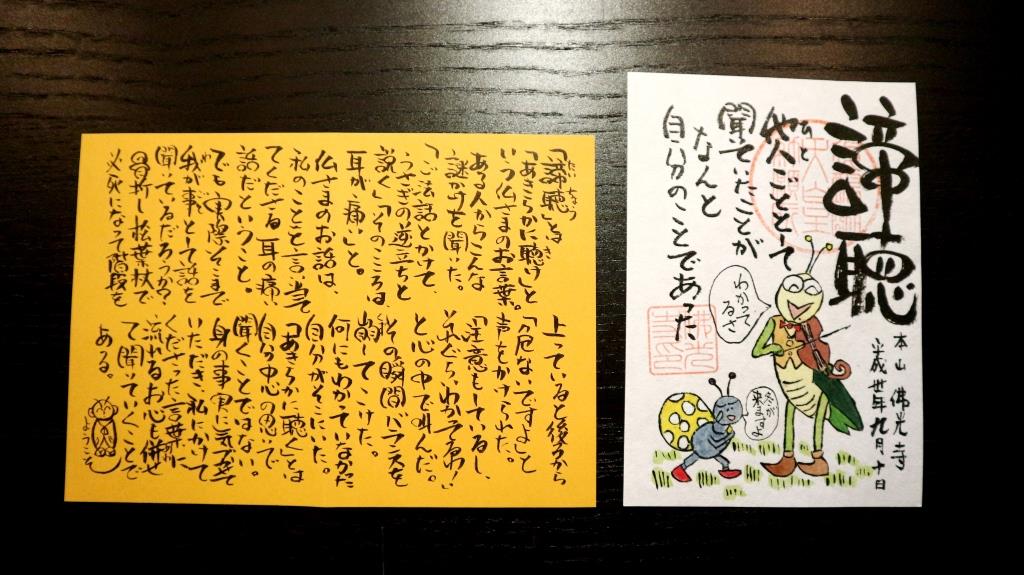 諦聴
他人ごととして
ひと
聞いていたことが
なんと
自分のことであった
わかって
るさ
冬が
来ますよ
本山 佛光寺
丗年九月十日
「諦聴」とは
たいちょう
「あきらかに聴け」と
き
いう仏さまのお言葉。
ある人からこんな
謎かけを聞いた。
「ご法話とかけて、
うさぎの逆立ちと
説く」「そのこころは、
耳が痛い」と。
仏さまのお話は、
私のことと言い当て
てくださる耳の痛い
話だということ。
でも実際どこまで
我が事として話を
聞いているだろうか?
骨折し松葉杖で
必死になって階段を
上っていると後から
「危ないですよ」と
声をかけられた。
「注意もしているし、
それぐらいわかってるわ!」
と心の中で叫んだ。
その瞬間バランスを
崩してこけた。
何にもわかっていなかった
自分がそこにいた。
「あきらかに聴く」とは
自分中心の思いで
聞くことではない。
身の事実に気づかせて
いただき、私にかけて
くださった言葉に
流れるお心も併せ
て聞いていくことで
ある。
ようこそ